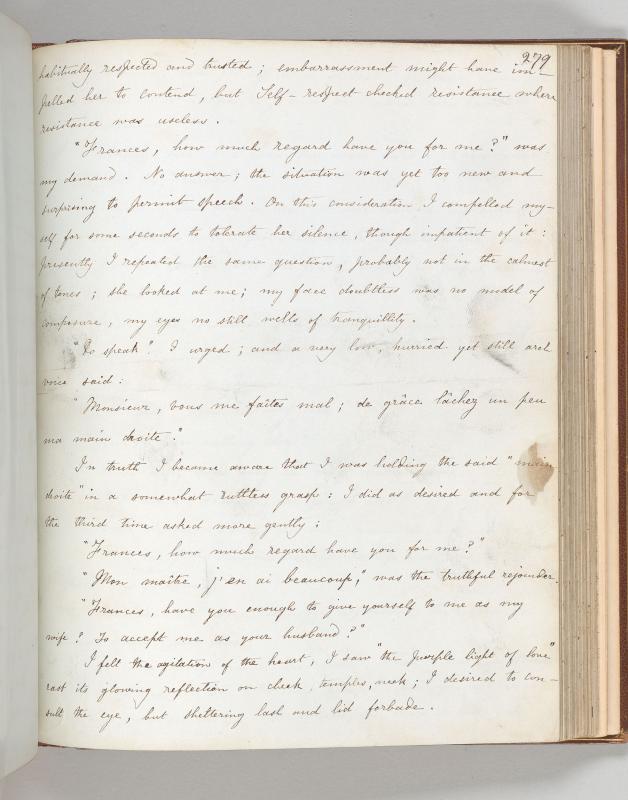 279
habitually respected and trusted; embarrassment might have im-
pelled her to contend, but Self-respect checked resistance where
resistance was useless.
"Frances, how much regard have you for me?" was
my demand. No answer; the situation was yet too new and
surprising to permit speech. On this consideration I compelled my-
self for some seconds to tolerate her silence, though impatient of it:
presently I repeated the same question, probably not in the calmest
of tones; she looked at me; my face doubtless was no model of
composure, my eyes no still wells of tranquillity.
"Do speak". I urged; and a very low, hurried yet still arch
voice said:
"Monsieur, vous me faîtes mal; de grâce lâchez un peu
ma main droite."
In truth I became aware that I was holding the said "main
droite" in a somewhat ruthless grasp: I did as desired and for
the third time asked more gently:
"Frances, how much regard have you for me?"
"Mon maître, j'en ai beaucoup", was the truthful rejoinder.
"Frances, have you enough to give yourself to me as my
wife? To accept me as your husband?"
I felt the agitation of the heart, I saw "the purple light of love"
cast its glowing reflection on cheek, temples, neck; I desired to con-
sult the eye, but sheltering lash and lid forbade.